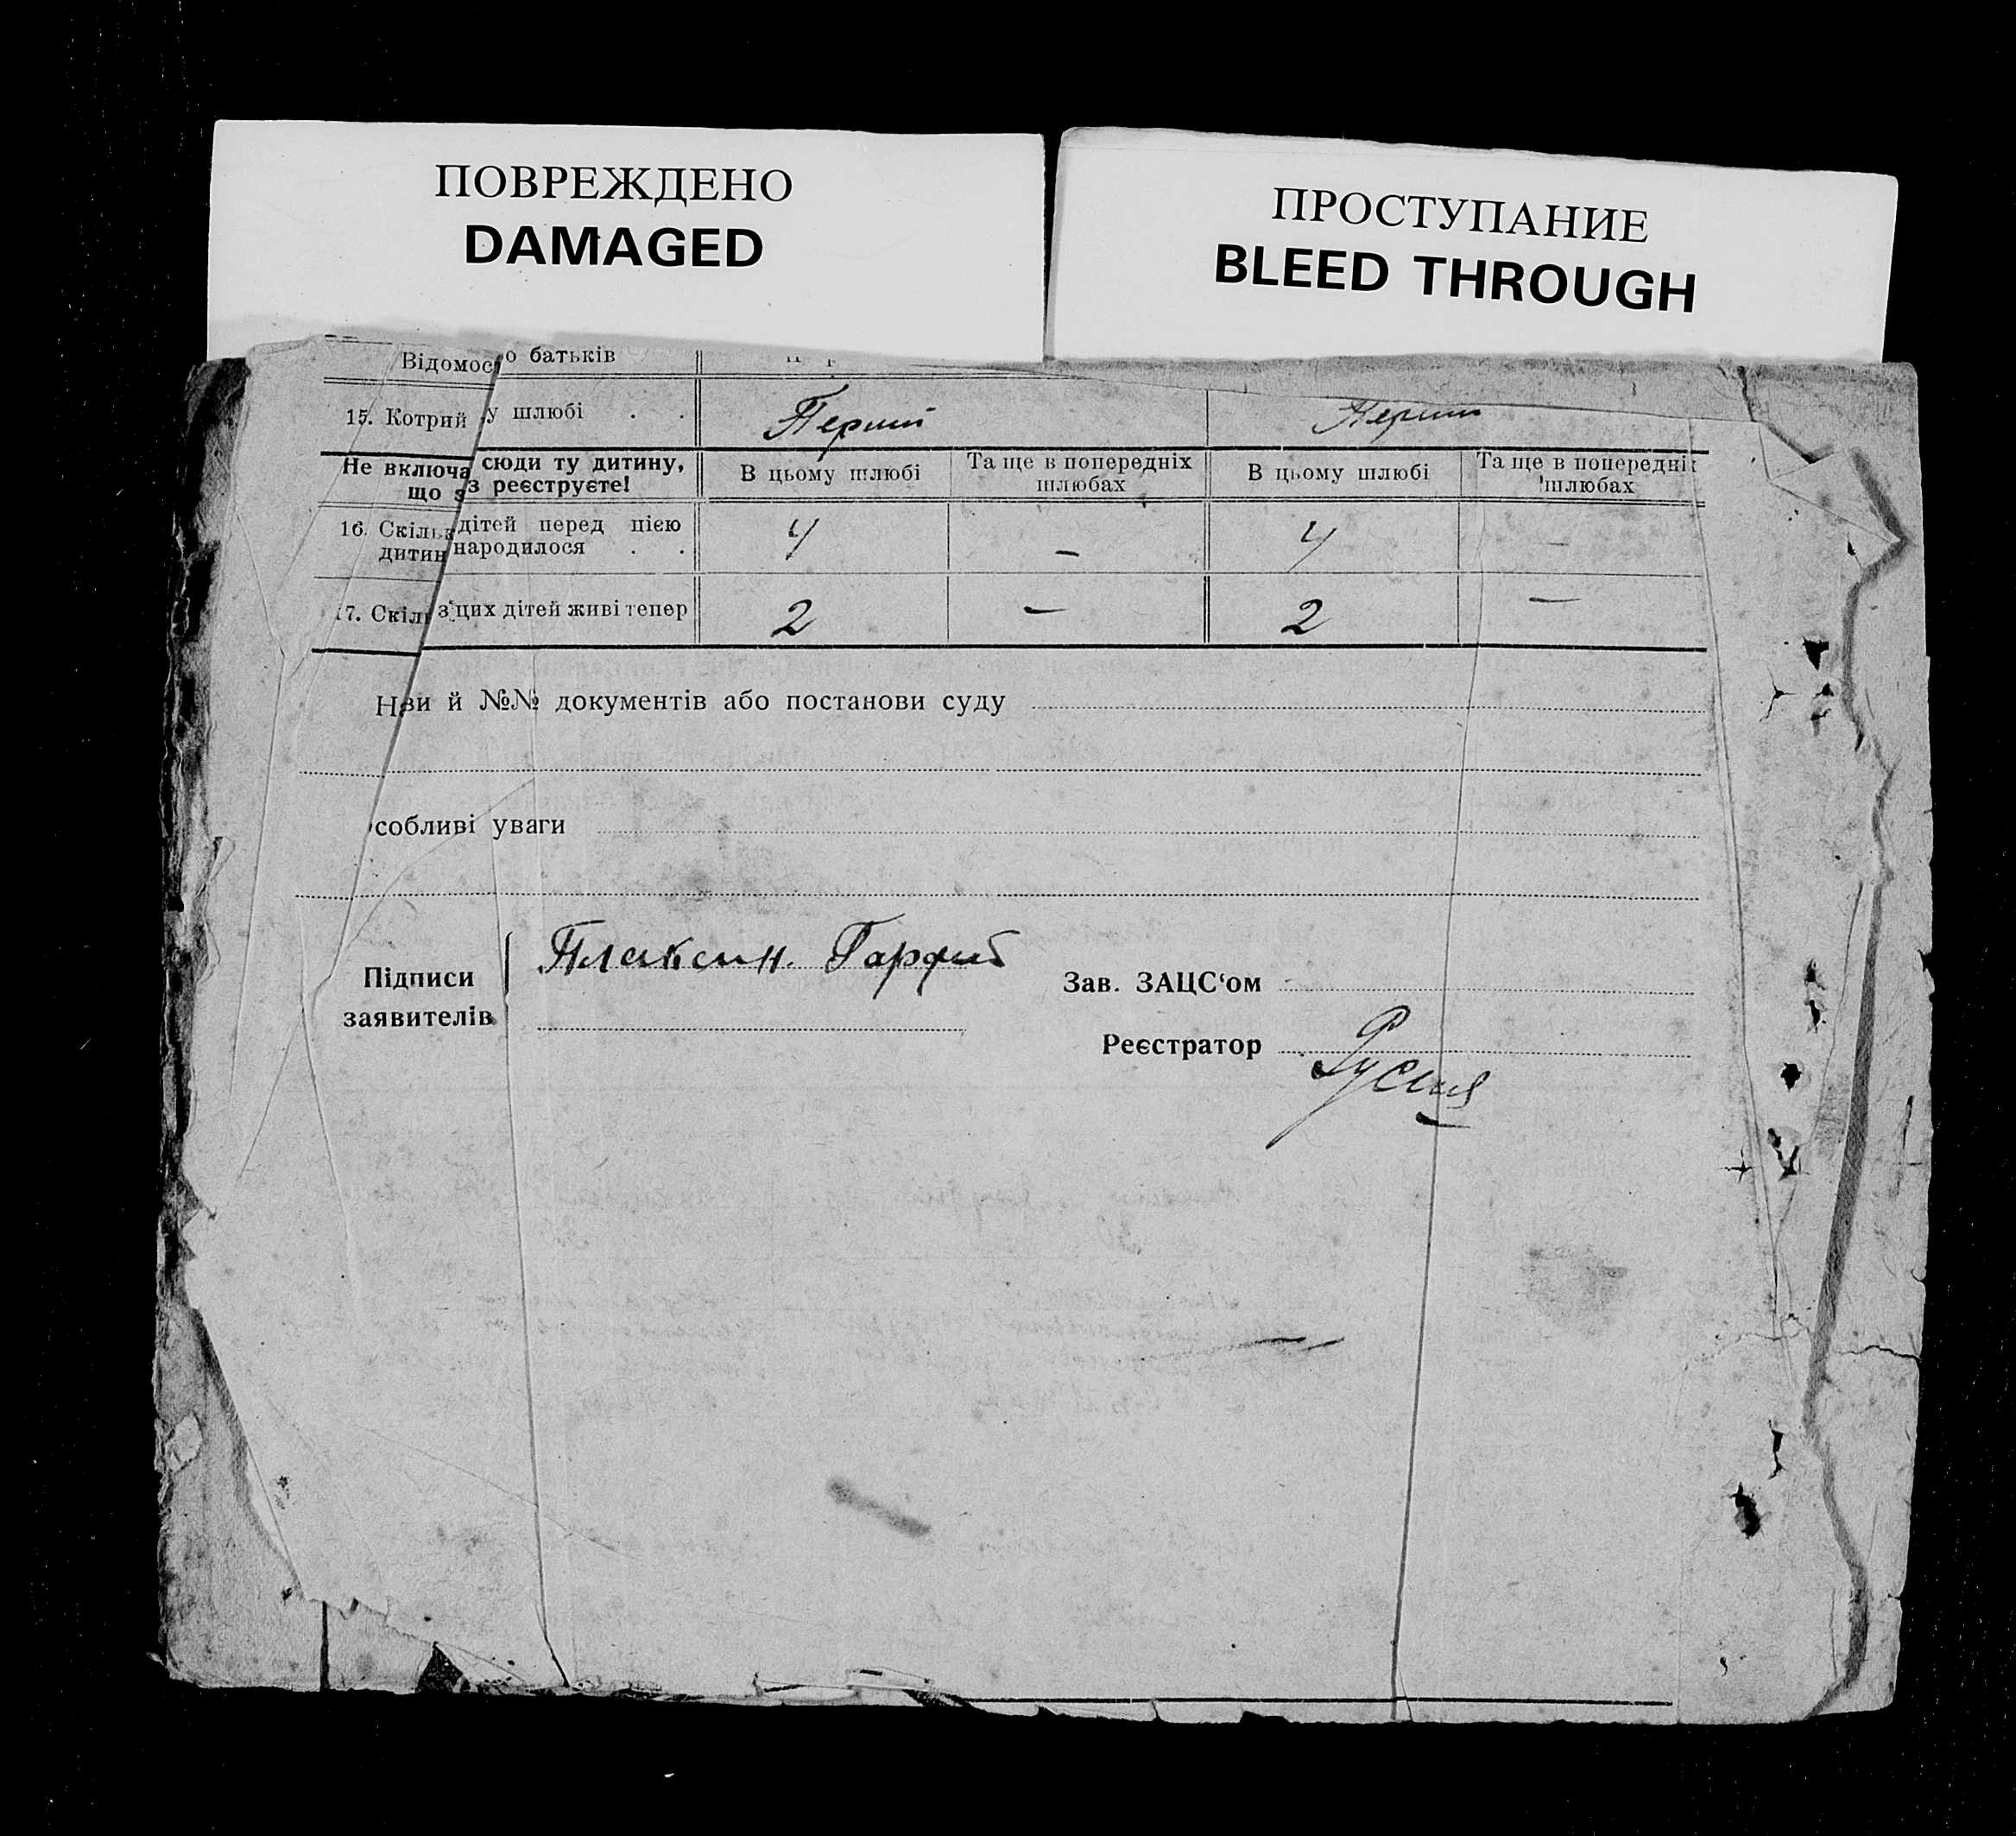 ПОВРЕЖДЕНО
DAMAGED
ПРОСТУПАНИЕ
BLEED THROUGH
Відомос о батьків
15. Котрий у шлюбі . . Перший Перший
Не включа сюди ту дитину, що з реєструєте! В цьому шлюбі Та ще в попередніх шлюбах В цьому шлюбі Та ще в попередніх шлюбах
16. Скільк дітей перед цією 4 — 4 —
дитин народилося . .
17. Скіль з цих дітей живі тепер 2 — 2 —
Н зви й №№ документів або постанови суду
собливі уваги
Підписи заявителів Плаксин.
Зав. ЗАЦС‘ом
Реєстратор